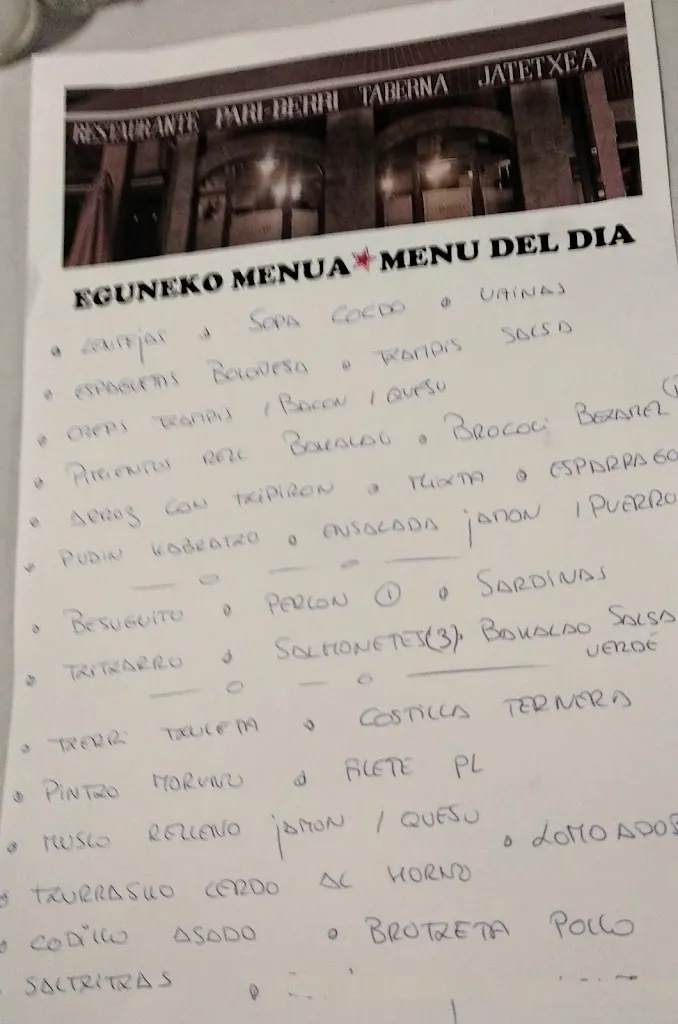 RESTAURANTE PARI-BERRI TABERNA JATETXEA
EGUNEKO MENUA MENU DEL DIA
• LENTEJAS • SOPA COCIDO • VAINAS
• ESPAGUETIS BOLOÑESA • TXAMPIS SALSA
• CREPS TXAMPIS / BACON / QUESO
• PIMIENTOS RELL BAKALAO • BROCOLI BEXAMEL
• ARROZ CON TXIPIRON • MIXTA • ESPARRAGO
• PUDIN KABRATXO • ENSALADA JAMON / PUERRO
• BESUGUITO • PERLON ① • SARDINAS
• TXITXARRO • SALMONETES (3) • BAKALAO SALSA
VERDE
• TXERRI TXULETA • COSTILLA TERNERA
• PINTXO MORUNO • FILETE PL
• MUSLO RELLENO JAMON / QUESO
• TXURRASKO CERDO AL HORNO • LOMO ADOB
• CODILLO ASADO • BROTXETA POLLO
• SALTXITXAS •